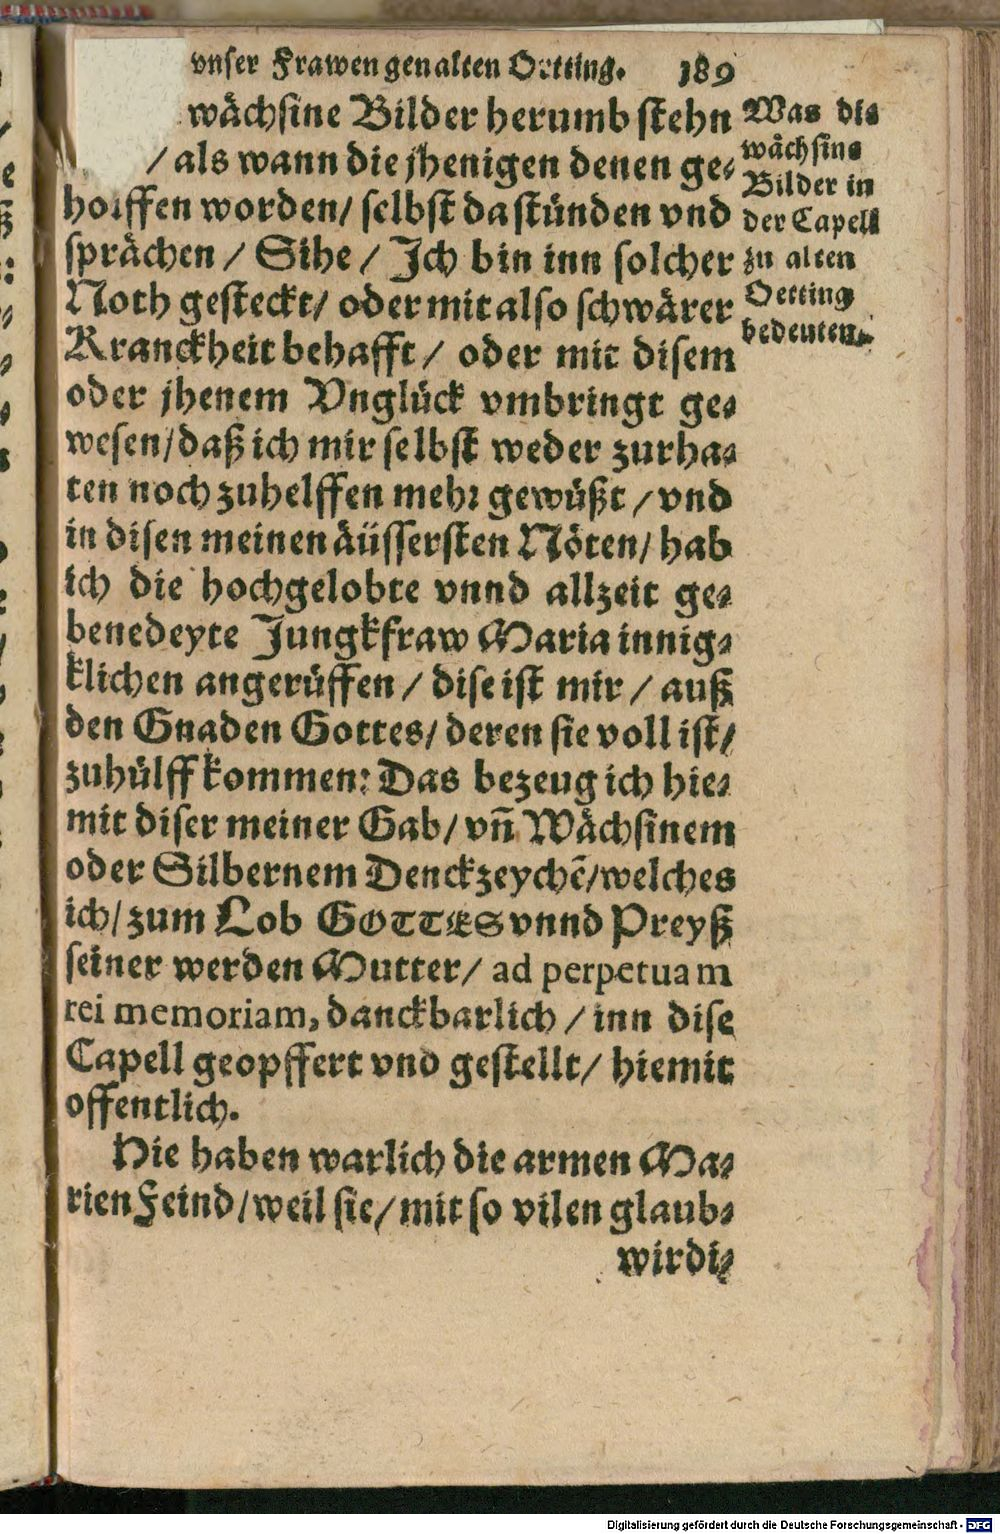 vnser Frawen gen alten Oetting. 189
wächsine Bilder herumb stehn
/ als wann die jhenigen denen ge⸗
holffen worden/ selbst da stünden vnd
sprächen / Sihe / Ich bin inn solcher
Noth gesteckt/ oder mit also schwärer
Kranckheit behafft / oder mit disem
oder jhenem Vnglück vmbringt ge⸗
wesen/daß ich mir selbst weder zurha⸗
ten noch zuhelffen mehr gewüßt / vnd
in disen meinen äüssersten Nöten/ hab
ich die hochgelobte vnnd allzeit ge⸗
benedeyte Jungkfraw Maria innig⸗
klichen angerüffen / dise ist mir / auß
den Gnaden Gottes/ deren sie voll ist/
zuhülff kommen: Das bezeug ich hie⸗
mit diser meiner Gab/ vn̄ Wächsinem
oder Silbernem Denckzeychē/welches
ich/ zum Lob GOTTES vnnd Preyß
seiner werden Mutter/ ad perpetuam
rei memoriam, danckbarlich / inn dise
Capell geopffert vnd gestellt/ hiemit
offentlich.
Hie haben warlich die armen Ma⸗
rien Feind/weil sie/ mit so vilen glaub⸗
wirdi⸗
Was die
wächsine
Bilder in
der Capell
zu alten
Oetting
bedeuten.
Digitalisierung gefördert durch die Deutsche Forschungsgemeinschaft - DFG